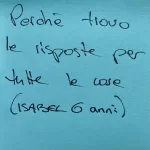 Perché trovo
le risposte per
tutte le cose
(ISABEL 6 anni)